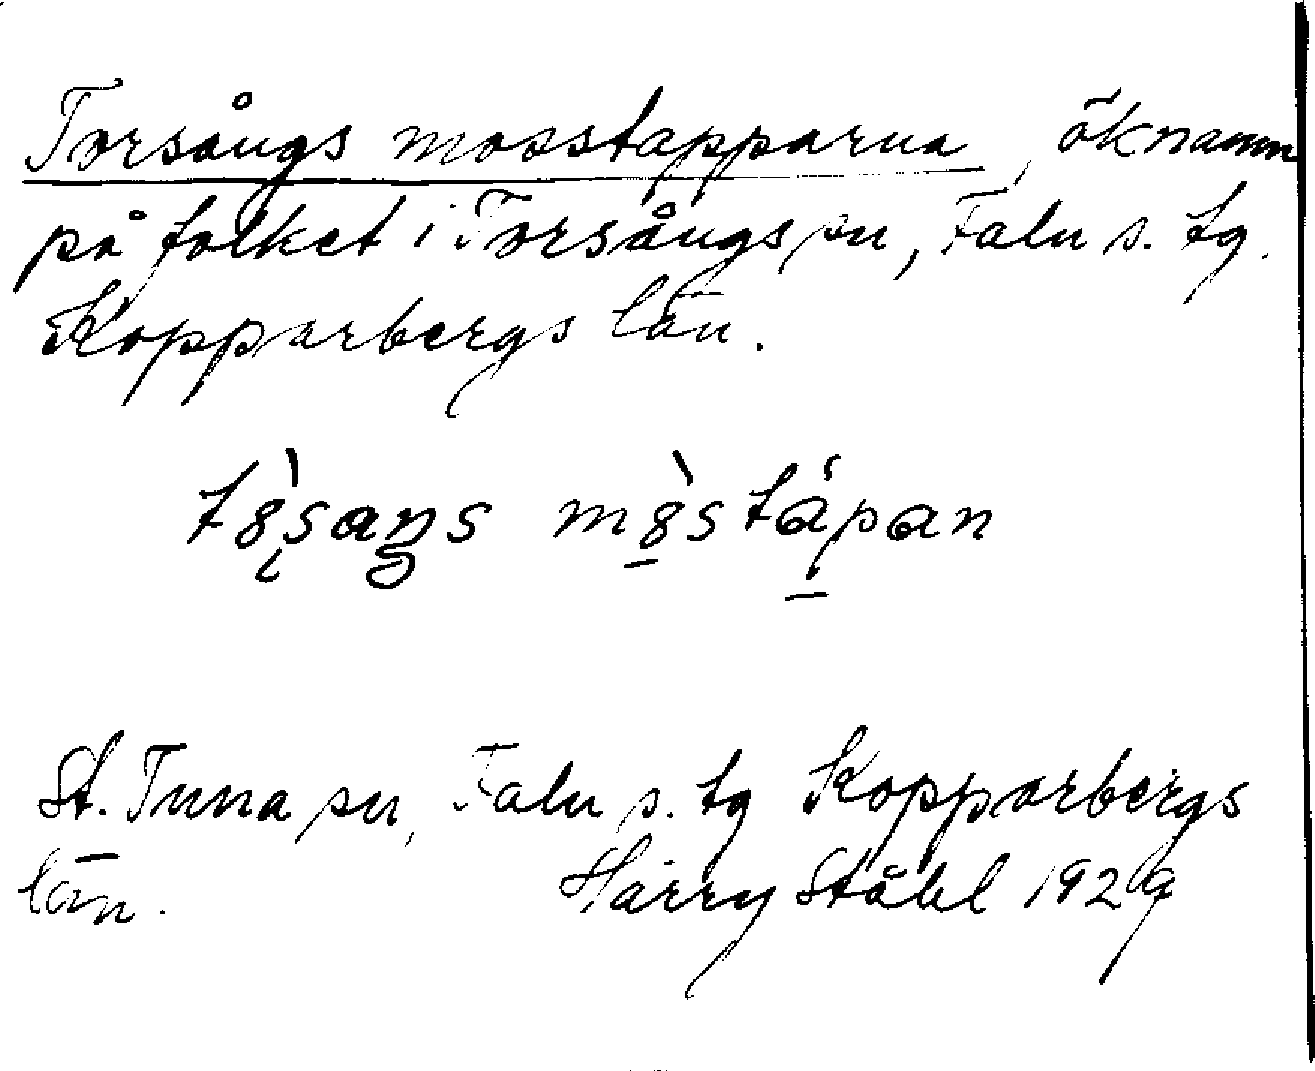 Torsångs mosstapparna, öknamn
på folket i Torsångs sn, Falu s. tg.
Kopparbergs län.
St. Tuna sn, Falu s. tg Kopparbergs
län. Harry Ståhl 1929